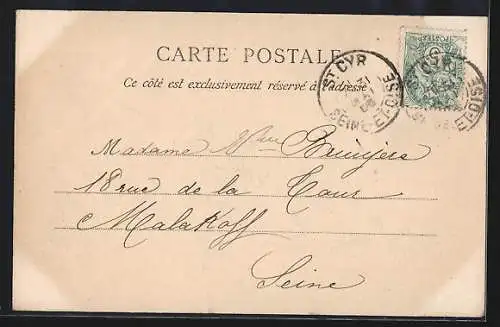 CARTE POSTALE
Ce côté est exclusivement réservé à l'adresse
ST CYR
SEINE-ET-OISE
ST CYR
ET-OISE
Madame Vve Bruyère
18 rue de la Tour
Malakoff
Seine